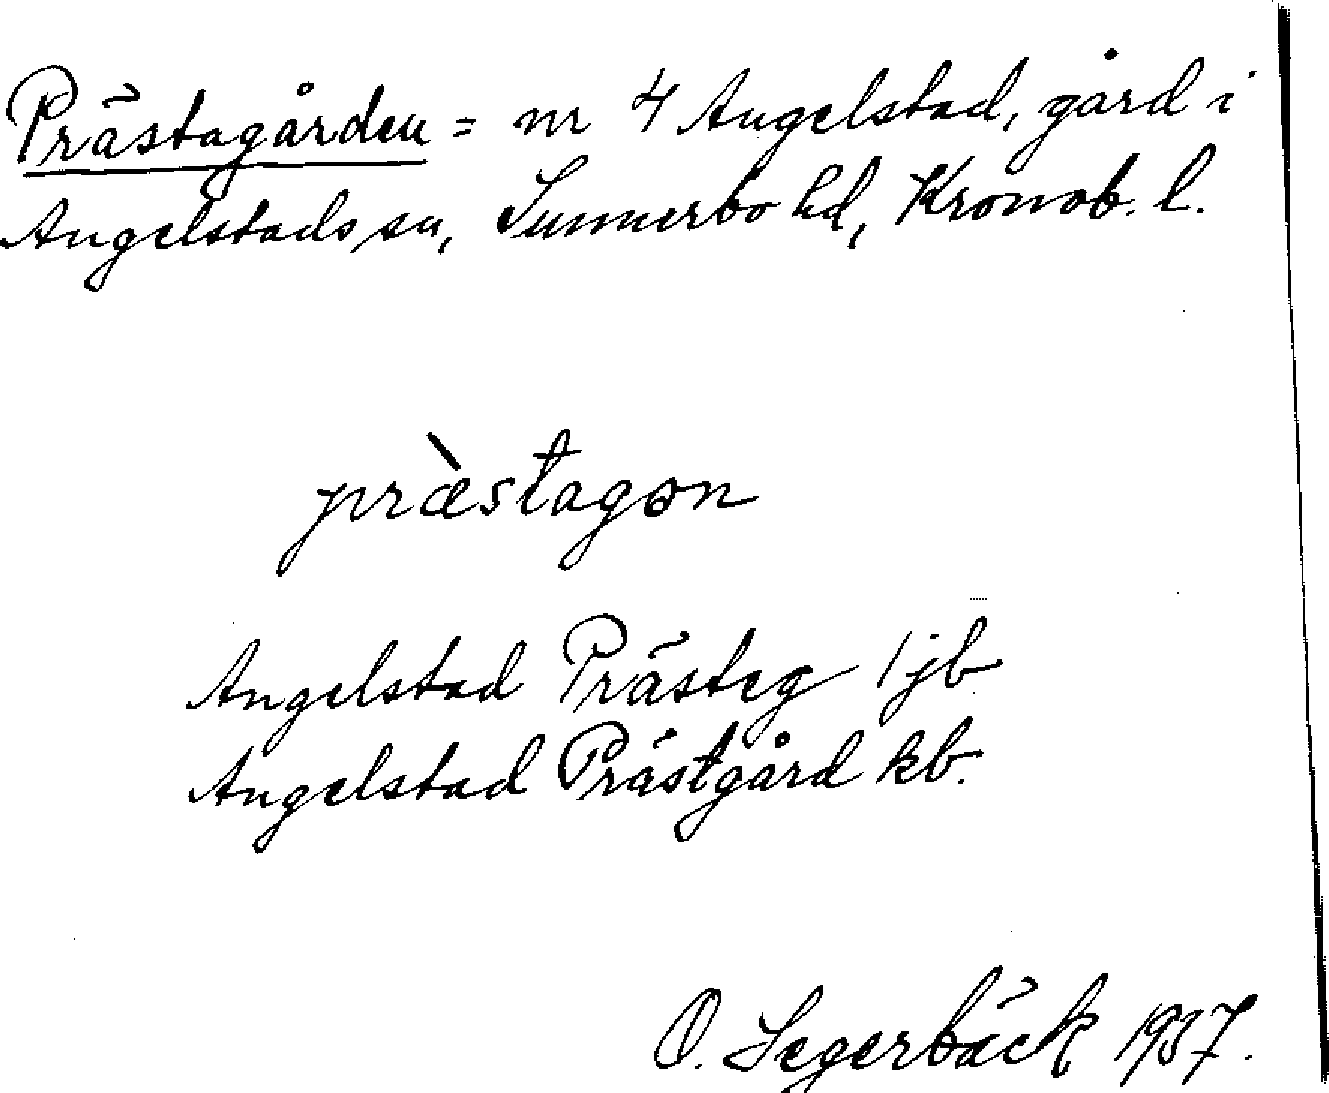 Prästagården = nr 4 Angelstad, gård i
Angelstads sn, Sunnerbo hd, Kronob. l.
præ̀stagon
Angelstad Prästeg 1 jb
Angelstad Prästgård kb.
O. Segerbäck 1937.